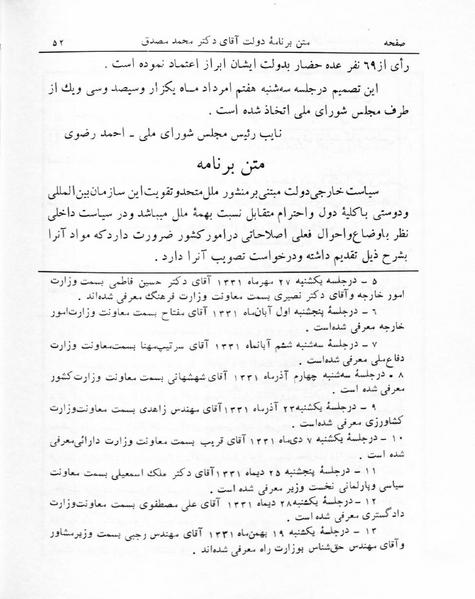 صفحه متن برنامهٔ دولت آقای دکتر محمد مصدق ۵۲
رأی از ۶۹ نفر عده حضار بدولت ایشان ابراز اعتماد نموده است .
این تصمیم درجلسه سه‌شنبه هفتم امرداد مـاه یکزار وسیصد وسی ویك از
طرف مجلس شورای ملی اتخاذ شده است .
نایب رئیس مجلس شورای ملی ـ احمد رضوی
متن برنامه
سیاست خارجی دولت مبتنی برمنشور ملل متحدوتقویت این سازمان بین‌المللی
ودوستی باکلیهٔ دول واحترام متقابل نسبت بهمهٔ ملل میباشد ودر سیاست داخلی
نظر باوضاع‌واحوال فعلی اصلاحاتی درامورکشور ضرورت داردکه مواد آنرا
بشرح ذیل تقدیم داشته ودرخواست تصویب آنرا دارد .
۵ ـ درجلسه یکشنبه ۲۷ مهرماه ۱۳۳۱ آقای دکتر حسین فاطمی بسمت وزارت
امور خارجه وآقای دکتر نصیری بسمت معاونت وزارت فرهنگ معرفی شده‌اند .
۶ ـ درجلسهٔ پنجشنبه اول آبان‌ماه ۱۳۳۱ آقای مفتاح بسمت معاونت وزارت‌امور
خارجه معرفی شده‌است .
۷ ـ درجلسهٔ سه‌شنبه ششم آبانماه ۱۳۳۱ آقای سرتیپ‌مهنا بسمت‌معاونت وزارت
دفاع‌ملی معرفی شده‌است .
۸ ـ درجلسهٔ سه‌شنبه چهارم آذرماه ۱۳۳۱ آقای شهشهانی بسمت معاونت وزارت‌کشور
معرفی شده است .
۹ ـ درجلسهٔ یکشنبه۲۳ آذرماه ۱۳۳۱ آقای مهندس زاهدی بسمت معاونت‌وزارت
کشاورزی معرفی شده‌است .
۱۰ ـ درجلسهٔ یکشنبه ۷ دی‌ماه ۱۳۳۱ آقای قریب بسمت معاونت وزارت دارائی‌معرفی
شده است .
۱۱ ـ درجلسهٔ پنجشنبه ۲۵ دیماه ۱۳۳۱ آقای دکتر ملك اسمعیلی بسمت معاونت
سیاسی وپارلمانی نخست وزیر معرفی شده است .
۱۲ ـ درجلسهٔ یکشنبه۲۸ دیماه ۱۳۳۱ آقای علی مصطفوی بسمت معاونت‌وزارت
دادگستری معرفی شده‌است .
۱۳ ـ درجلسهٔ یکشنبه ۱۹ بهمن‌ماه ۱۳۳۱ آقای مهندس رجبی بسمت وزیرمشاور
وآقای مهندس حق‌شناس بوزارت راه معرفی شده‌اند .